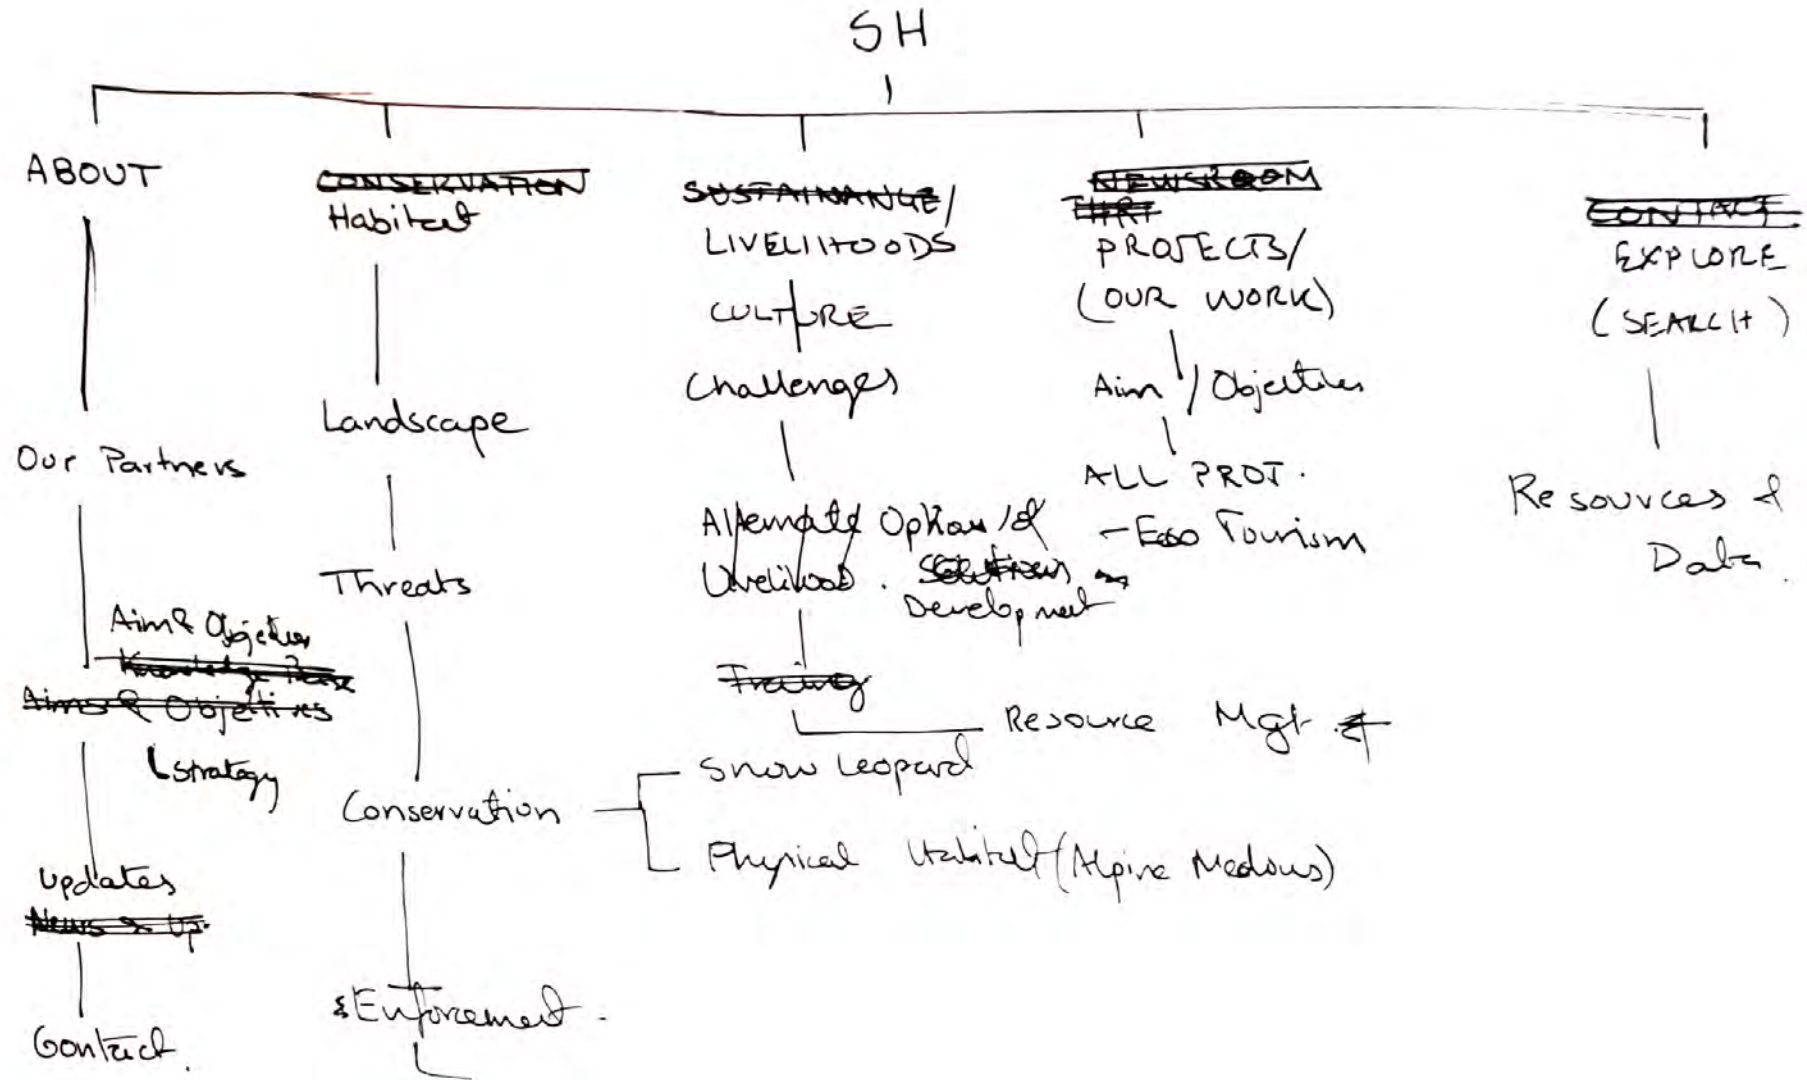 SH
ABOUT
Our Partners
Aim & Objectives
Aims & Objectives
Strategy
Updates
News & Up.
Contact.
CONSERVATION
Habitat
Landscape
Threats
Conservation
Snow Leopard
Physical Habitat (Alpine Medows)
& Enforcement.
SUSTAINANCE/
LIVELIHOODS
CULTURE
Challenges
Alternate Options of
Livelihood. Solutions
Development
Training
Resource Mgt.
NEWSROOM
PROJECTS/
(OUR WORK)
Aim / Objectives
ALL PROJ.
- Eco Tourism
CONTACT
EXPLORE
(SEARCH)
Resources &
Data.